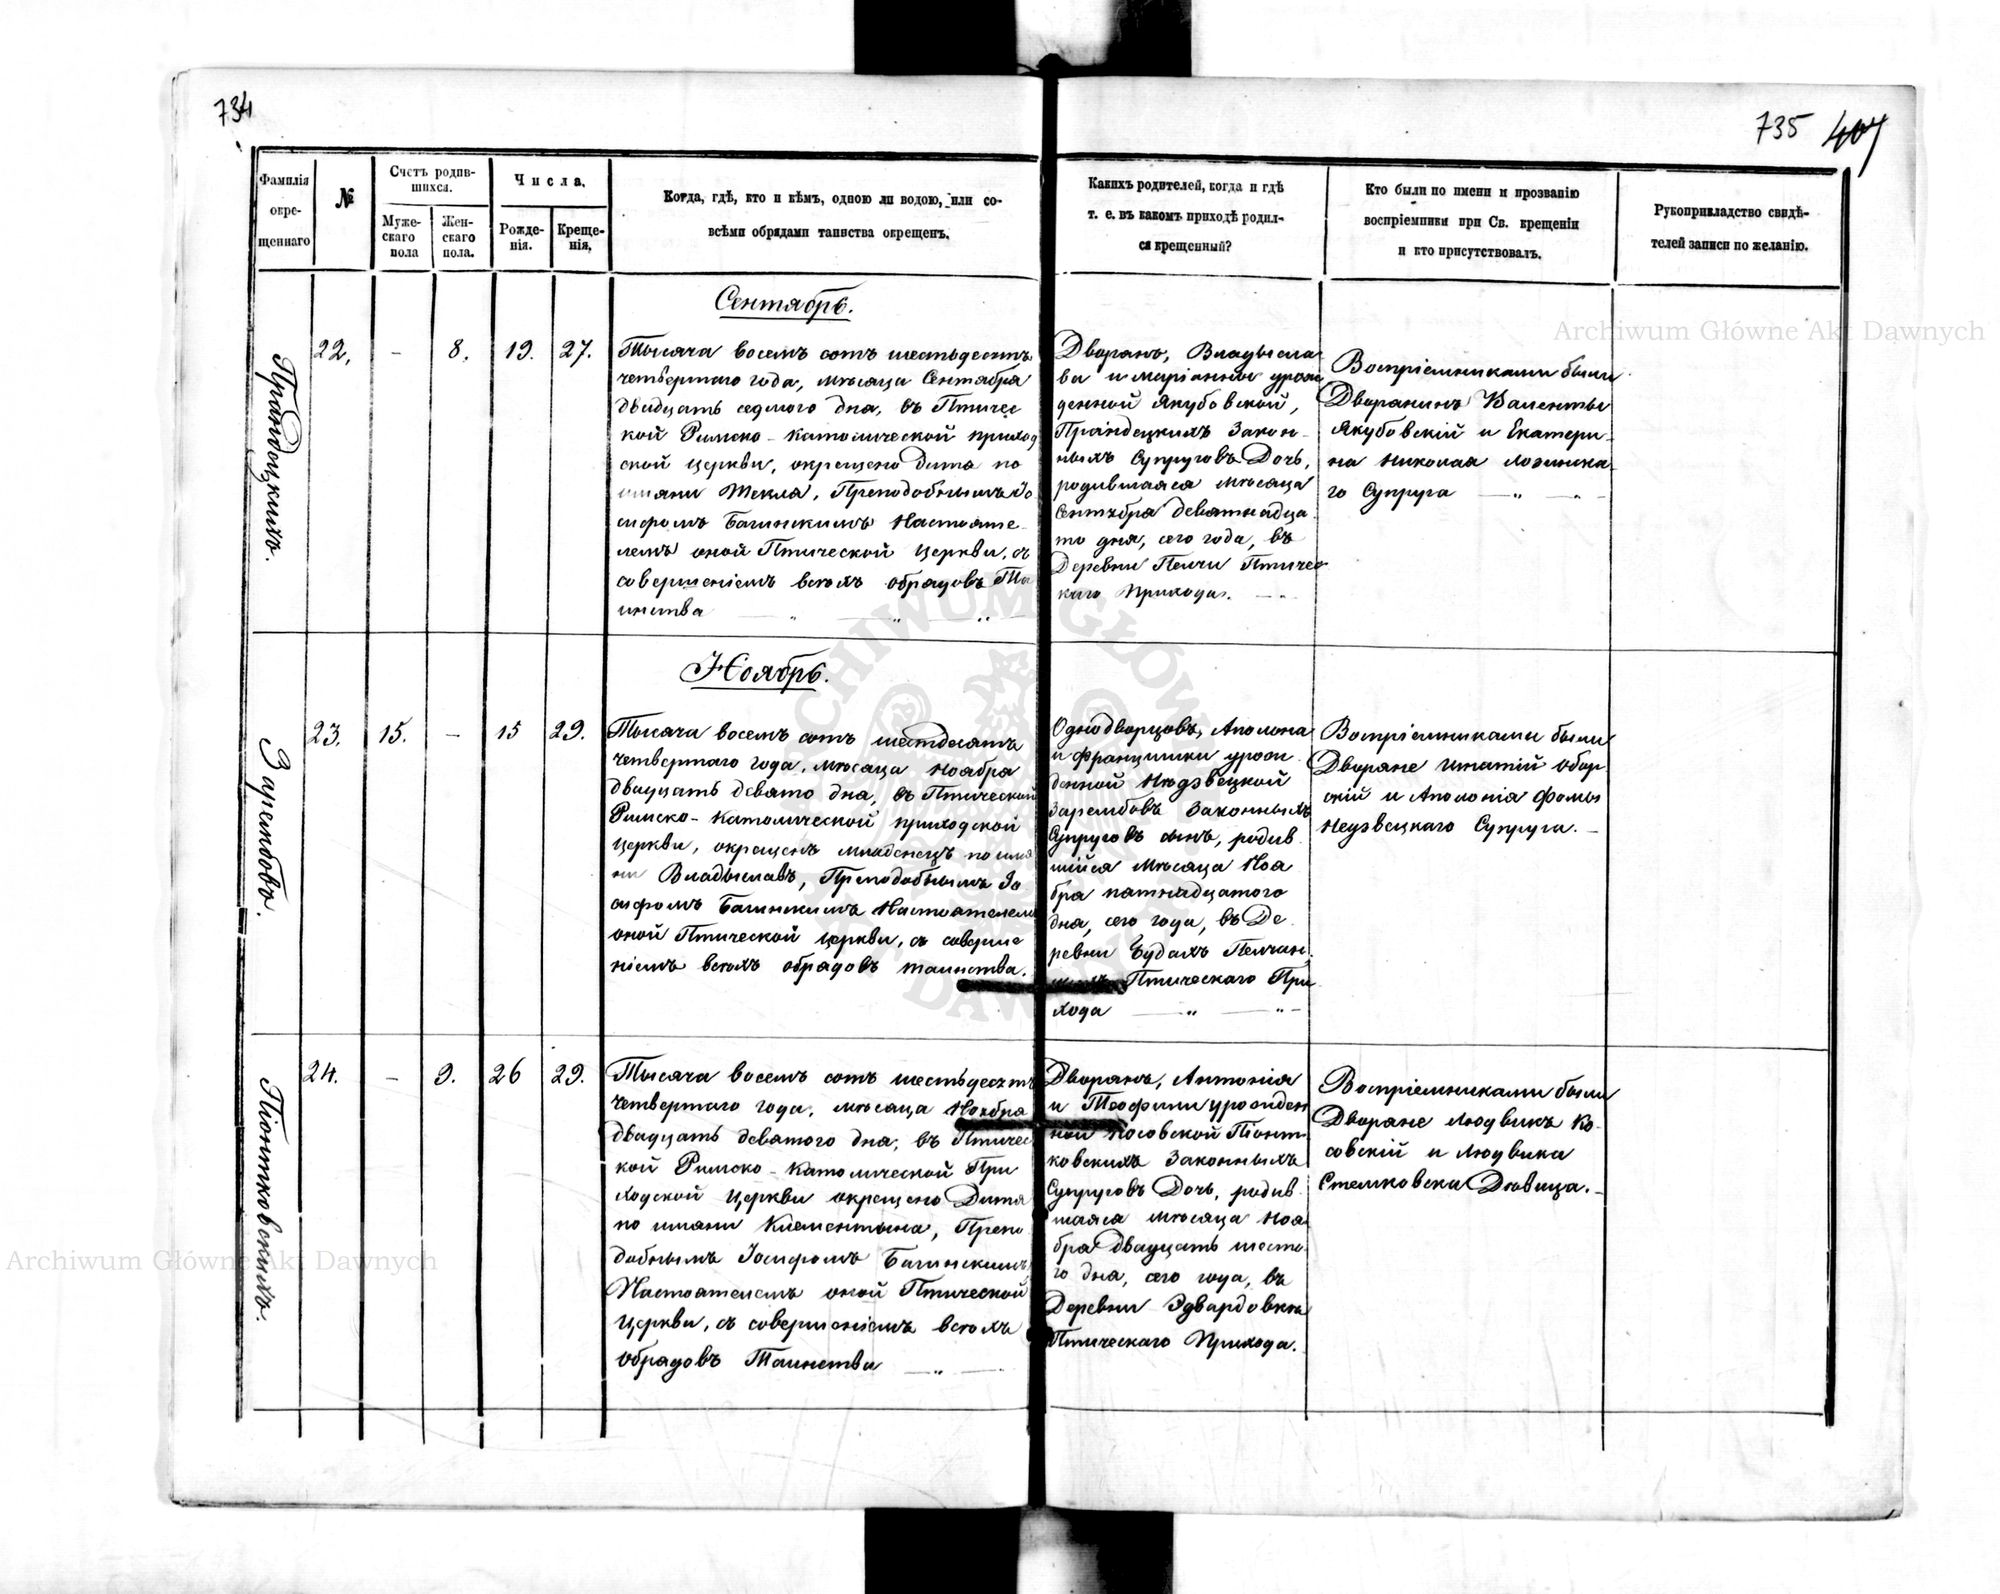 734
735 407
Фамилія окре-щеннаго
№
Счетъ родив-шихся.
Муже-скаго пола
Жен-скаго пола.
Числа.
Рожде-нія.
Креще-нія.
Когда, гдѣ, кто и кѣмъ, одною ли водою, или со-
всѣми обрядами таинства окрещенъ.
Какихъ родителей, когда и гдѣ
т. е. въ какомъ приходѣ родил-
ся крещенный?
Кто были по имени и прозванію
воспріемники при Св. крещеніи
и кто присутствовалъ.
Рукоприкладство свидѣ-
телей записи по желанію.
Archiwum Główne Akt Dawnych
Сентябрь.
22. - 8. 19. 27.
Тысяча восемъ сотъ шестьдесятъ
четвертаго года, мѣсяца Сентября
двадцать седмого дня, въ Птичес
кой Римско-Католической приход
ской церкви, окрещено дитя по
имяни Текля, Преподобнымъ Іо
сифомъ Багинскимъ Настояте
лемъ оной Птической церкви, съ
совершеніемъ всѣхъ обрядовъ Та
инства
Дворянъ, Владысла
ва и Маріанны урож
денной Якубовской,
Закон-
ныхъ Супруговъ Дочь,
родившаяся мѣсяца
Сентября девятнадца
то дня, сего года, въ
Деревни Пелчи Птичес
каго Прихода.
Воспріемниками были
Дворянинъ Валенты
Якубовскій и Екатери-
на Николая
го Супруга
Ноябрь.
Зарембовъ.
23. 15. - 15 29.
Тысяча восемъ сотъ шестдесятъ
четвертаго года, мѣсяца Ноября
двадцать девято дня, въ Птической
Римско-Католической приходской
церкви, окрещенъ младенецъ по имя
ни Владыславъ, Преподобнымъ Іо
сифомъ Багинскимъ Настоятелемъ
оной Птической церкви, съ соверше
ніемъ всѣхъ обрядовъ таинства.
Однодворцовъ, Аполона
и Францишки урож
денной Нѣдзвецкой
Зарембовъ Законныхъ
Супруговъ сынъ, родив
шійся мѣсяца Ноя
бря пятнадцатого
дня, сего года, въ Де
ревни Будахъ Пелчан
Птическаго При
хода
Воспріемниками были
Дворяне Игнатій Обор
скій и Аполонія Фомы
Недзвецкаго Супруга.
Піонтковскихъ.
24. - 9. 26 29.
Тысяча восемъ сотъ шестьдесятъ
четвертаго года, мѣсяца Ноября
двадцать девятого дня, въ Птичес
кой Римско-Католической При
ходской церкви окрещено Дитя
по имяни Клементына, Препо
добнымъ Іосифомъ Багинскимъ
Настоятелемъ оной Птической
Церкви, съ совершеніемъ всѣхъ
обрядовъ Таинства
Дворянъ, Антонія
и Теофили урожден
ной Косовской Піонт
ковскихъ Законныхъ
Супруговъ Дочь, родив
шаяся мѣсяца Ноя
бря Двадцать шесто
го дня, сего года, въ
Деревни Эдвардовкѣ
Птическаго Прихода.
Воспріемниками были
Дворяне Людвикъ Ко
совскій и Людвика
Дѣвица.
Archiwum Główne Akt Dawnych